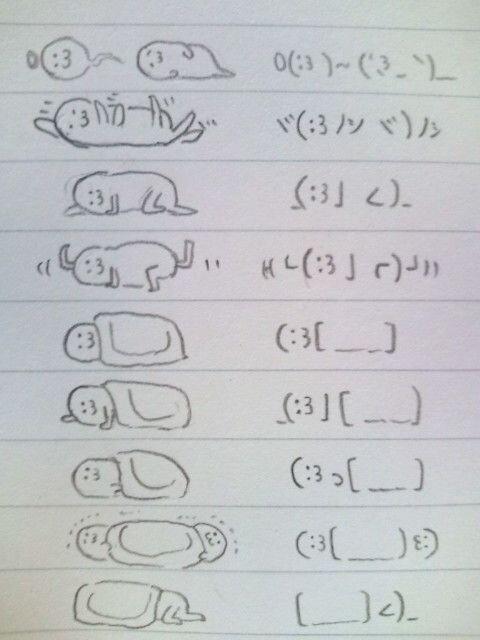 O(:3 )~ ('3_ `)_
ヾ(:3ﾉシ ヾ)ﾉシ
_(:3」 <)_
ｷ└(:3」┌)┘))
(:3[ ___ ]
_(:3」[ ___ ]
(:3っ[ ___ ]
(:3[ ___ ]ε:)
[ ___ ]<)_